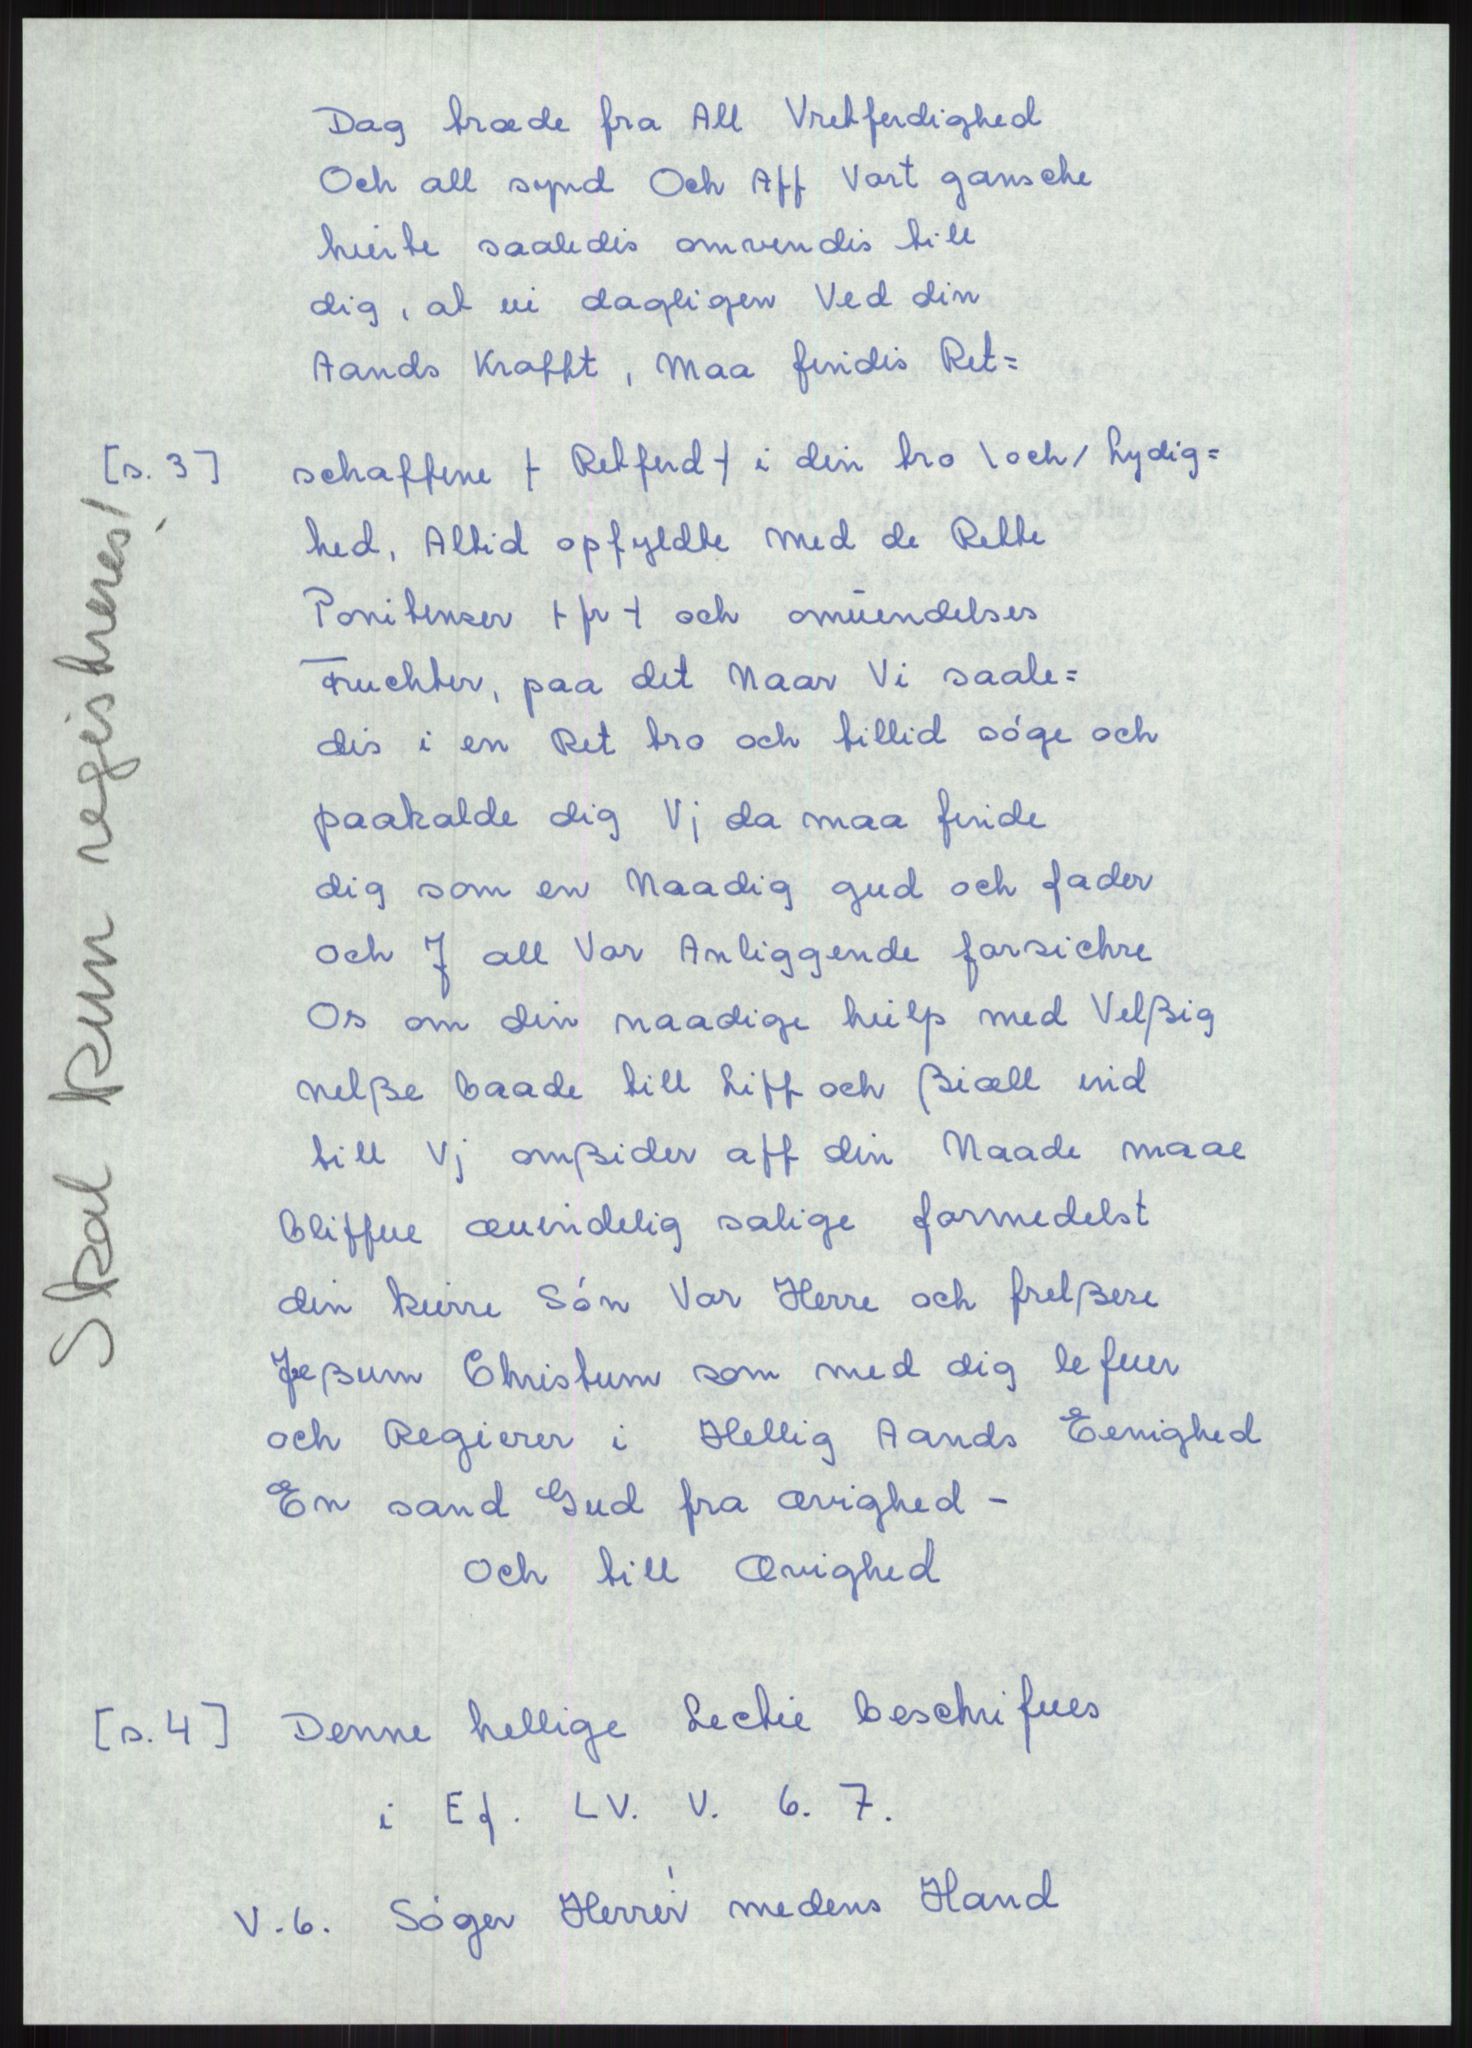 Dag træde fra All Vretferdighed
Och all synd Och Aff Vort gansche
hierte saaledis omvendis till
dig, at vi dagligen Ved din
Aands Krafft, Maa findis Ret=
[s. 3] schaffene + Retferd + i din tro \och/ Lydig=
hed, Altid opfyldte med de Rette
Ponitenser + fr + och omūendelses
Fruchter, paa det Naar Vi saale=
dis i en Ret tro och tillid söge och
paakalde dig Vj da maa finde
dig som en Naadig gud och fader
och J all Vor Anliggende forsichre
Os om din naadige hielp med Velßig
nelße baade till Liff och ßiæll ind
till Vj omßider aff din Naade maae
bliffue æuindelig salige formedelst
din kierre Són Vor Herre och frelßere
Jeßum Christum som med dig lefuer
och Regierer i Hellig Aands Eenighed
En sand Gud fra ævighed -
och till Ævighed
[s. 4] Denne hellige Lectie beschrifues
i Ef. LV. V. 6. 7.
V. 6. Söger Herren medens Hand
Skal kun registreres!